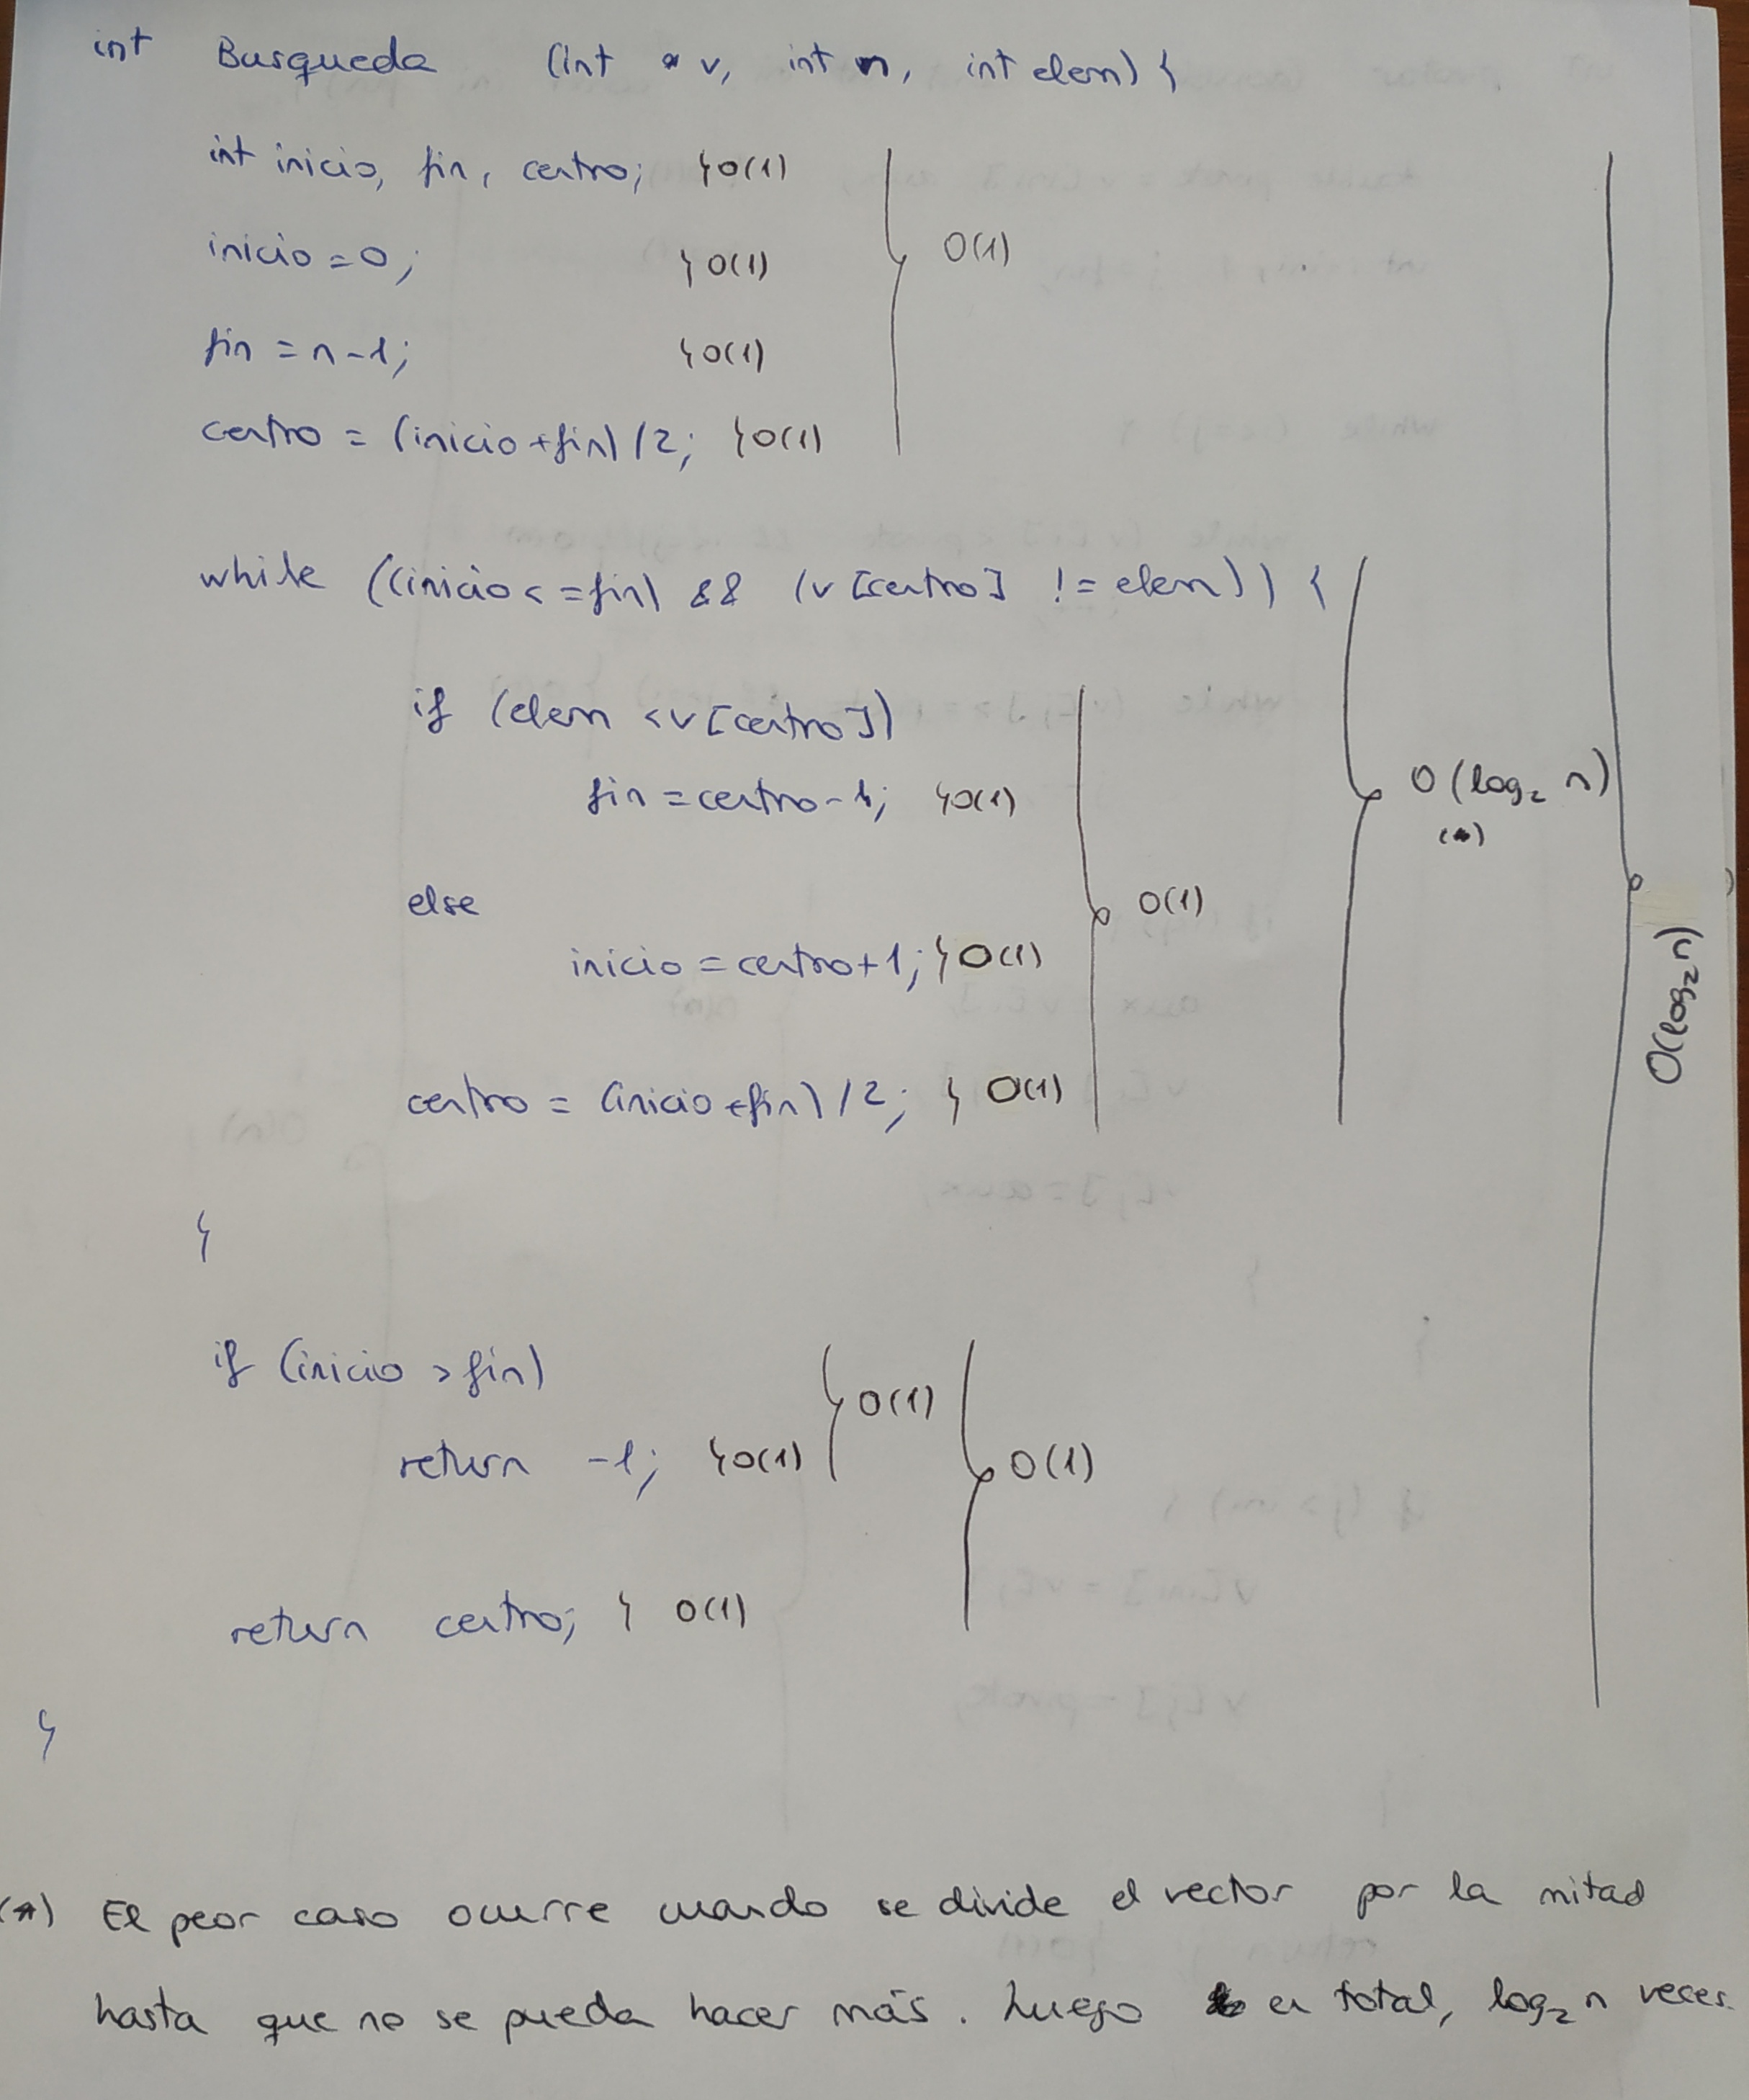 int Busqueda (int * v, int n, int elem) {
int inicio, fin, centro; } O(1)
inicio = 0; } O(1)
O(1)
fin = n-1; } O(1)
centro = (inicio + fin) / 2; } O(1)
while ((inicio <= fin) && (v [centro] != elem)) {
if (elem < v [centro])
fin = centro - 1; } O(1)
O (log₂ n)
(*)
else
O(1)
inicio = centro + 1; } O(1)
O(log₂ n)
centro = (inicio + fin) / 2; } O(1)
}
if (inicio > fin)
O(1)
return -1; } O(1)
O(1)
return centro; } O(1)
}
(*) El peor caso ocurre cuando se divide el vector por la mitad
hasta que no se pueda hacer más. Luego en total, log₂ n veces.